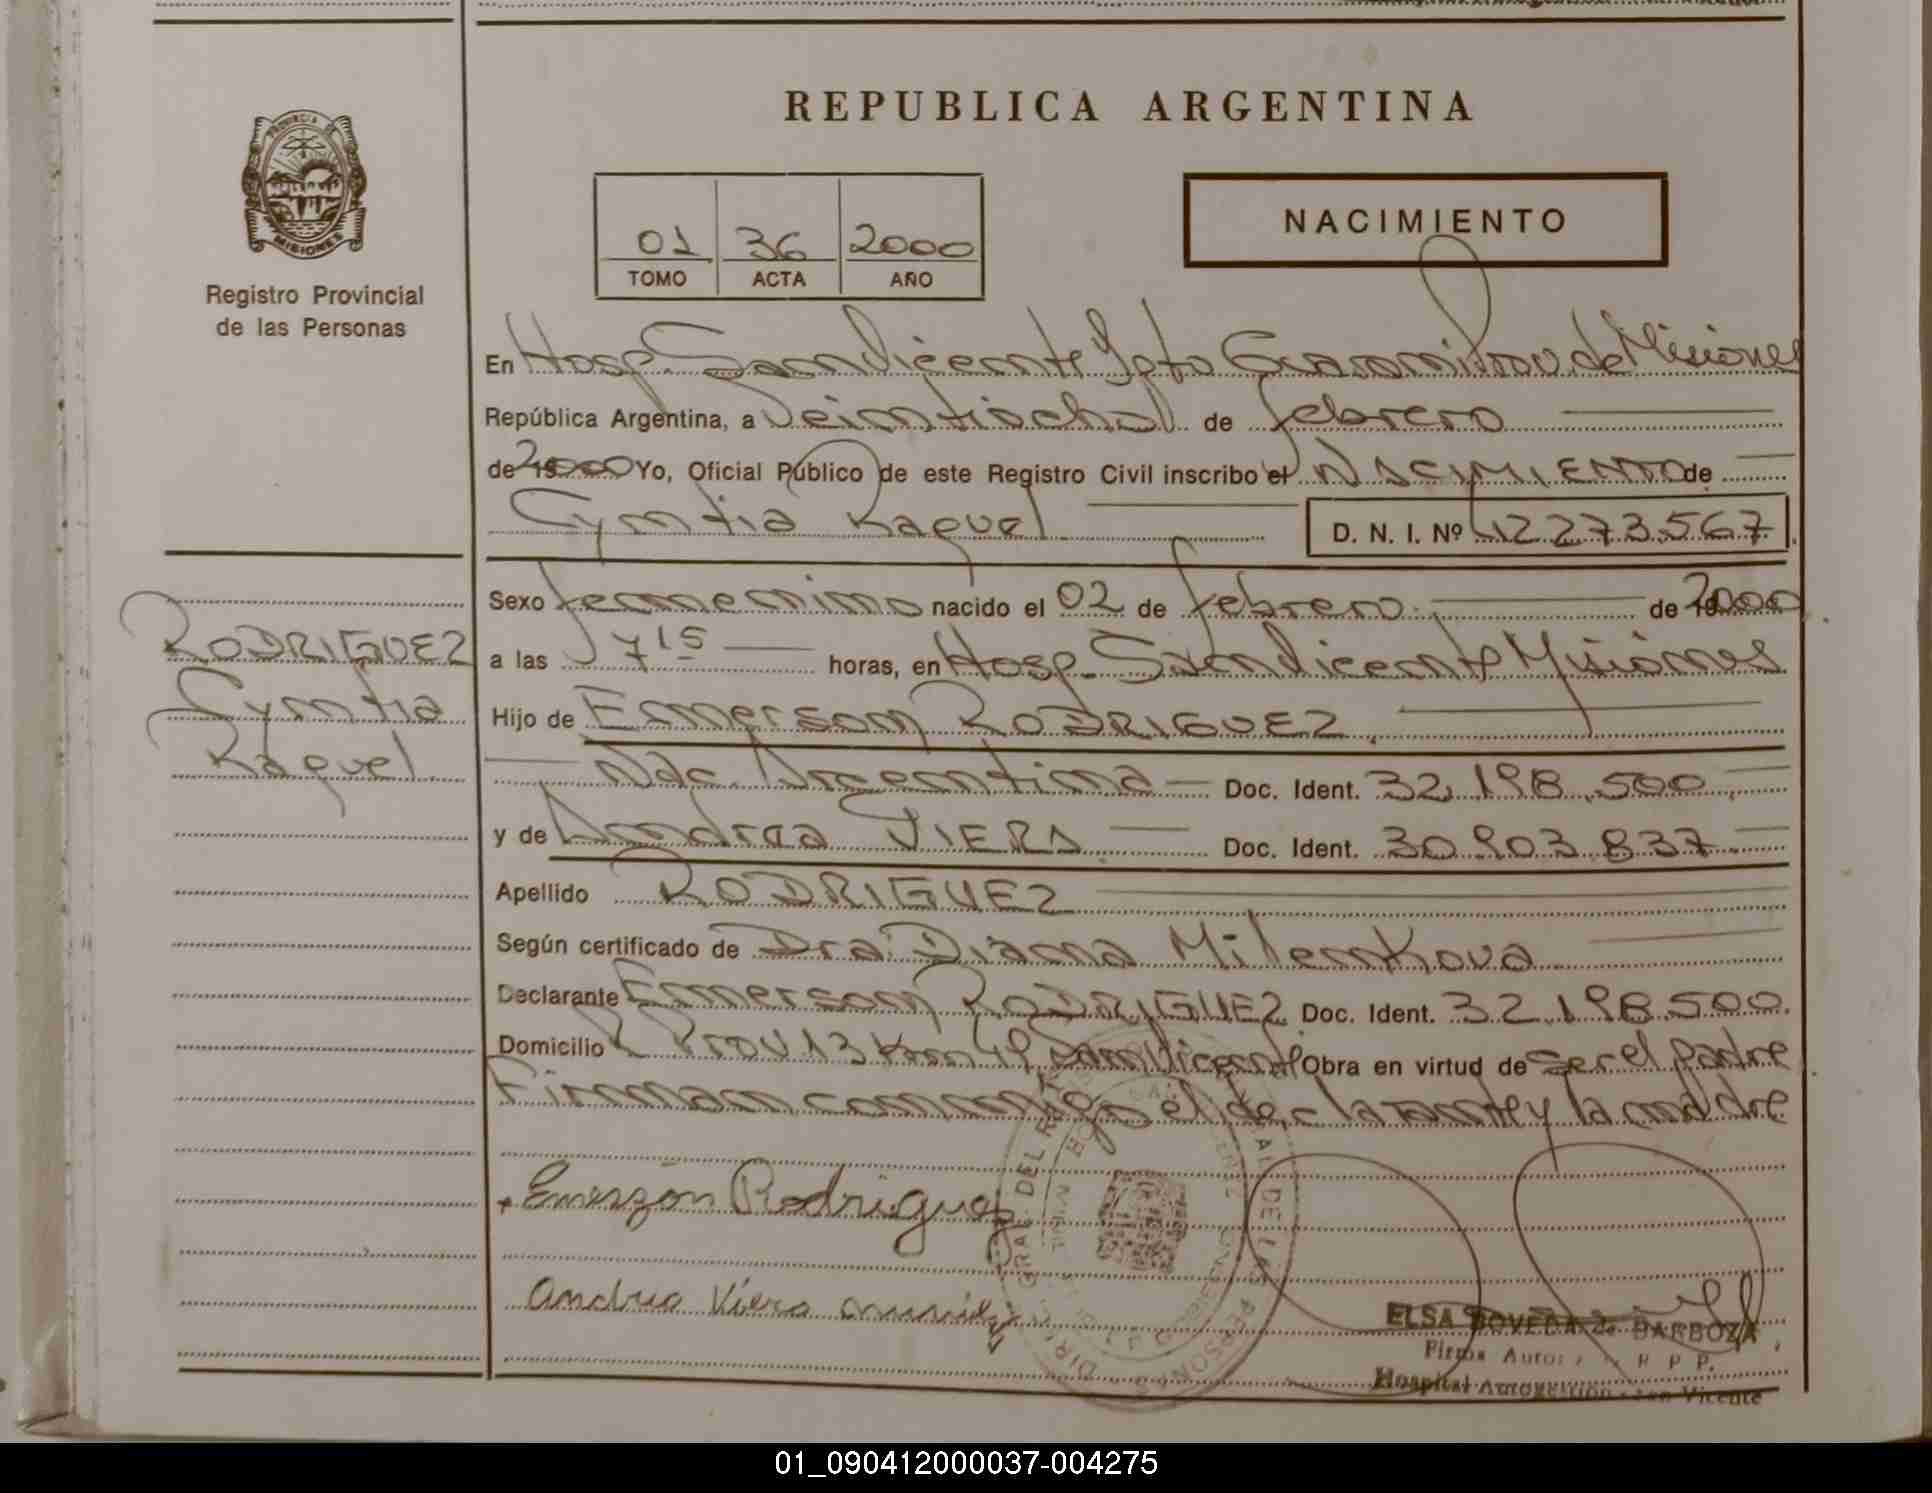 REPUBLICA ARGENTINA
PROVINCIA DE
MISIONES
Registro Provincial
de las Personas
01 36 2000
TOMO ACTA AÑO
NACIMIENTO
En Hosp. San Vicente Dpto Guaraní Prov. de Misiones
República Argentina, a Veintiocho de febrero
de 2000 Yo, Oficial Público de este Registro Civil inscribo el NACIMIENTO de
Cyntia Raquel D. N. I. Nº 42273.567
Sexo femenino nacido el 02 de febrero de 2000
a las 7 15 horas, en Hosp. San Vicente Misiones
Hijo de Emerson RODRIGUEZ
Nac. Argentina Doc. Ident. 32.198.500
y de Andrea VIERA Doc. Ident. 30.903.837
Apellido RODRIGUEZ
Según certificado de Dra. Diana Milenkova
Declarante Emerson RODRIGUEZ Doc. Ident. 32.198.500
Domicilio R Prov 13 Km 49 San Vicente Obra en virtud de ser el padre
Firman conmigo el declarante y la madre
RODRIGUEZ
Cyntia
Raquel
Emerzon Rodriguez
Andrea Viera
ELSA BOVEDA Z. BARBOZA
Firma Autor R P P.
Hospital Autogestión San Vicente
01_090412000037-004275